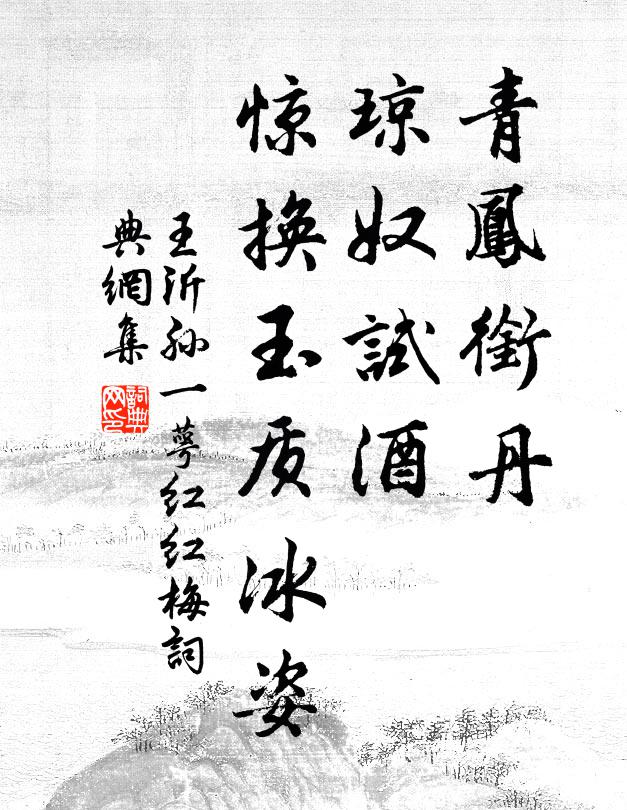 青鳳銜丹
琼奴試酒
惊换玉质冰姿
王沂孙一萼红红梅詞
典網集
詞典網印